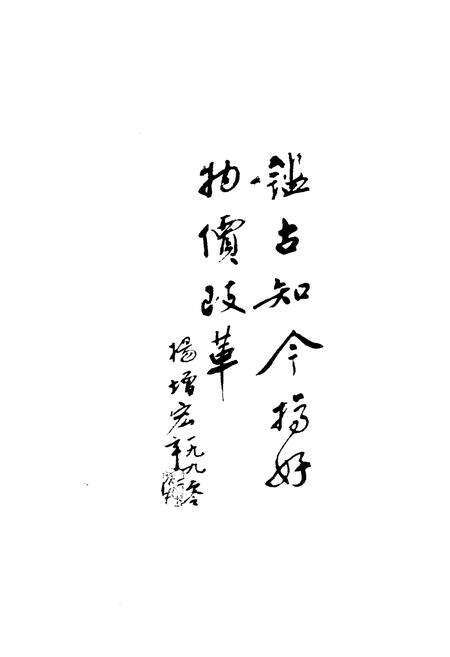 鑑古知今搞好
物價改革
楊增宏
一九九零
年